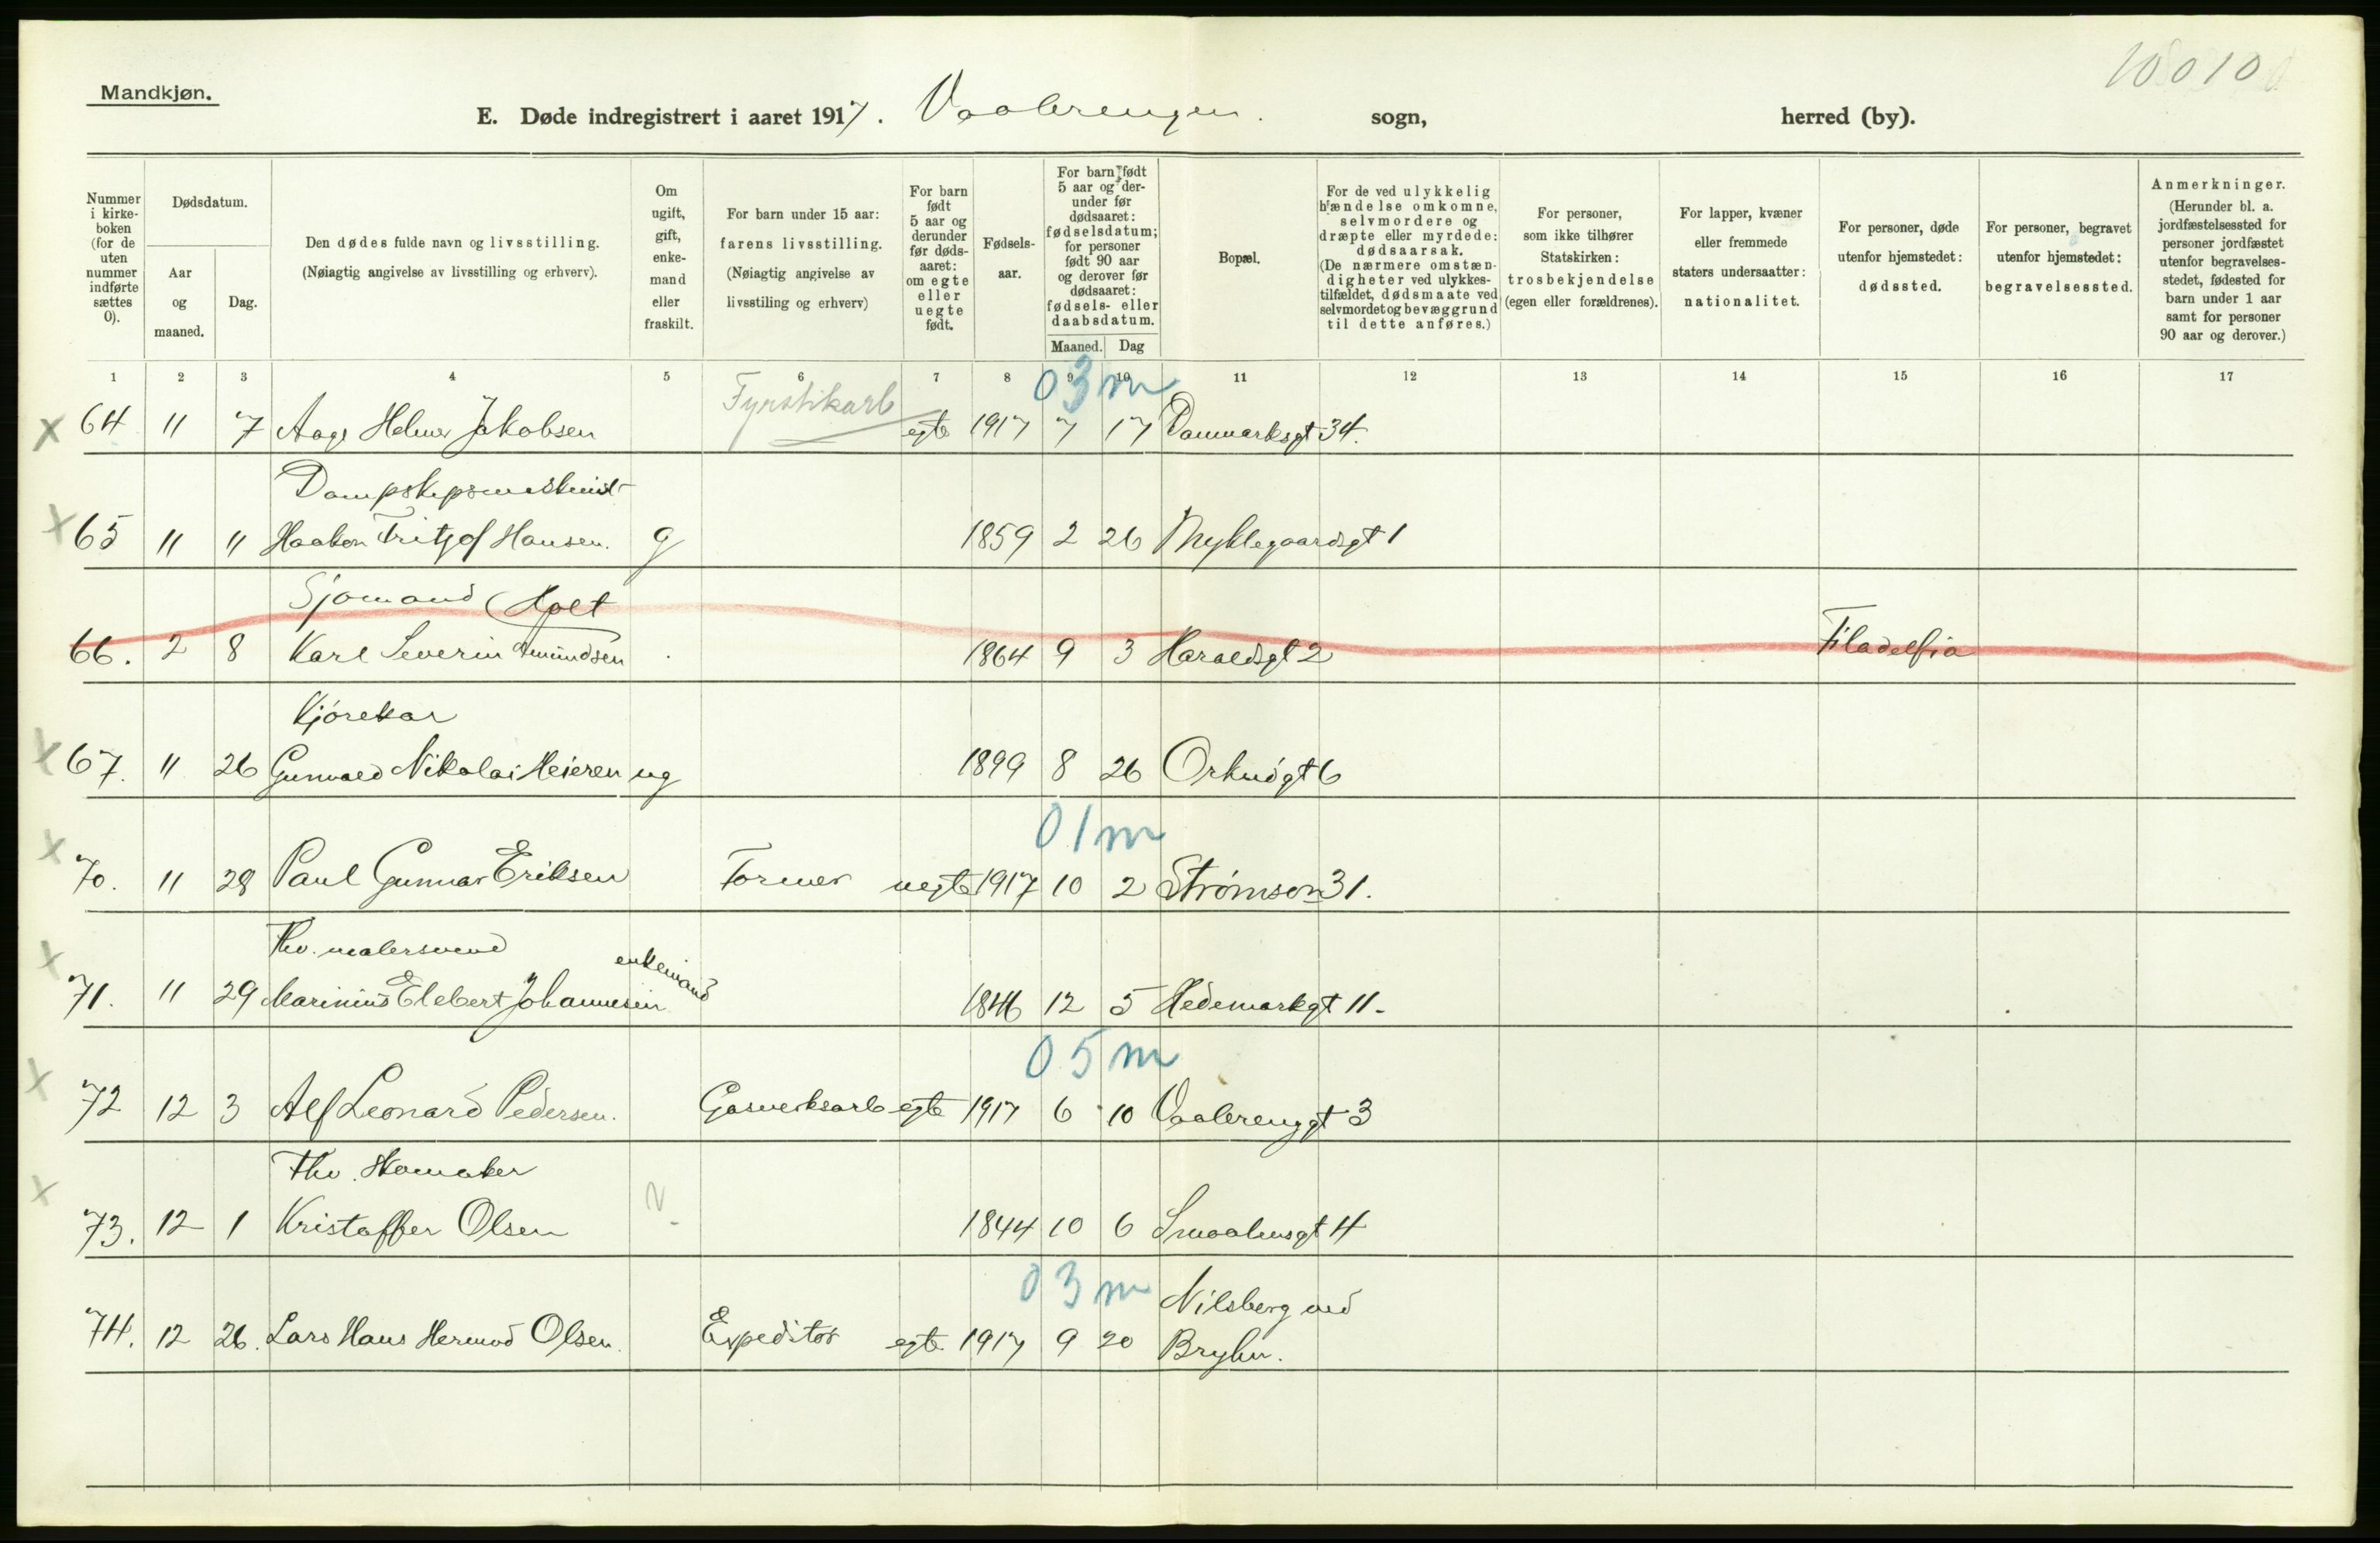 10010
Mandkjøn.
E. Døde indregistrert i aaret 1917. Vaalerengen. sogn, herred (by).
Nummer i kirkeboken (for de uten nummer indførte sættes 0).
Dødsdatum.
Aar og maaned.
Dag.
Den dødes fulde navn og livsstilling.
(Nøiagtig angivelse av livsstilling og erhverv).
Om ugift, gift, enkemand eller fraskilt.
For barn under 15 aar:
farens livsstilling.
(Nøiagtig angivelse av livsstiling og erhverv)
For barn født 5 aar og derunder før dødsaaret: om egte eller uegte født.
Fødselsaar.
For barn født 5 aar og derunder før dødsaaret: fødselsdatum; for personer født 90 aar og derover før dødsaaret: fødsels- eller daabsdatum.
Maaned. Dag
Bopæl.
For de ved ulykkelig hændelse omkomne, selvmordere og dræpte eller myrdede: dødsaarsak.
(De nærmere omstændigheter ved ulykkestilfældet, dødsmaate ved selvmordet og bevæggrund til dette anføres.)
For personer, som ikke tilhører Statskirken: trosbekjendelse (egen eller forældrenes).
For lapper, kvæner eller fremmede staters undersaatter: nationalitet.
For personer, døde utenfor hjemstedet: dødssted.
For personer, begravet utenfor hjemstedet: begravelsessted.
Anmerkninger.
(Herunder bl. a. jordfæstelsessted for personer jordfæstet utenfor begravelsesstedet, fødested for barn under 1 aar samt for personer 90 aar og derover.)
1 2 3 4 5 6 7 8 9 10 11 12 13 14 15 16 17
03m
Fyrstikarb
x 64 11 7 Aage Helmer Jakobsen egte 1917 7 17 Danmarksgt 34.
Dampskipsmaskinist
x 65 11 11 Haakon Fritjof Hansen. g 1859 2 26 Nyklegaardsgt 1
Sjømand (Holt
66. 2 8 Karl Severin Amundsen 1864 9 3 Haraldsgt 2 Filadelfia
Kjørekar
x 67. 11 26 Gunvald Nikolai Heieren ug 1899 8 26 Orknøgt 6
01m
x 70. 11 28 Paul Gunnar Eriksen Former uegte 1917 10 2 Strømsvn 31.
Fhv. malersvend
x 71. 11 29 Marinius Elebert Johannesen enkemand 1846 12 5 Hedemarkgt 11.
05m
x 72 12 3 Alf Leonard Pedersen. Gasverksarb egte 1917 6 10 Vaalerenggt 3
Fhv. Skomaker
x 73. 12 1 Kristoffer Olsen 1844 10 6 Smaalensgt 4
03m
Nilsberg ved
74. 12 26. Lars Hans Hermod Olsen. Expeditør egte 1917 9 20 Bryhn.